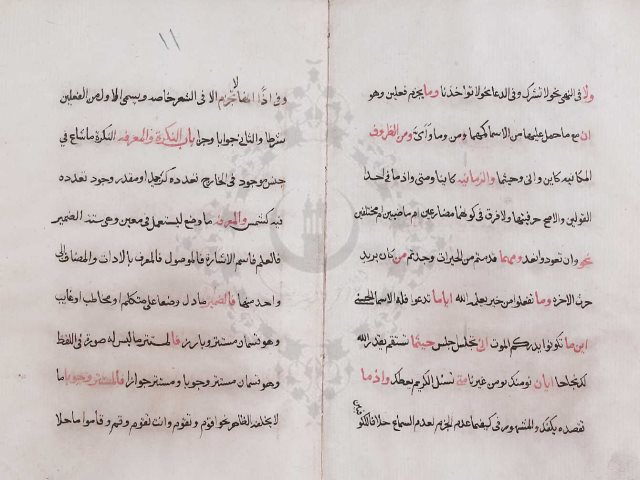 ولا فى النهى نحو لا تشرك وفى الدعا نحو لا تواخذنا وما يجزم فعلين وهو
ان مع ما حمل عليها من الاسما كمهما ومن وما وأىّ ومن الظروف
المكانيه كاين وانى وحيثما والزمانيه كايا ومتى واذما فى احد
القولين والاصح حرفيتها ولا فرق فى كونهما مضارعين ام ماضيين ام مختلفين
نحو وان تعودوا نعد ومهما قدمتم من الخيرات وجدتم من كان يريد
حرث الاخره وما تفعلوا من خير يعلمه الله اياما تدعوا فله الاسماء الحسنى
اين ما تكونوا يدرككم الموت انى تجلس اجلس حيثما تستقم يقدر الله
لك نجاحا ايان نومنك تومن غيرنا متى تسئل الكريم يعطك واذ ما
تقصده يكفك والمشهور فى كيفما عدم الجزم لعدم السماع خلافا للكوفيين
١١
وفى اذا ايضا لا تجزم الا فى الشعر خاصه ويسمى الاول من الفعلين
شرطا والثانى جوابا وجزا باب النكرة والمعرفه النكرة ما شاع فى
جنس موجود فى الخارج تعدده كرجل او مقدر وجود تعدده
فيه كشمس والمعرفه ما وضع ليستعمل فى معين وهى ستة الضمير
فالعلم فاسم الاشارة فالموصول فالمعرف بالادات والمضاف الى
واحد منها فالضمير ما دل وضعا على متكلم او مخاطب او غايب
وهو قسمان مستتر وبارز فالمستتر ما ليس له صورة فى اللفظ
وهو قسمان مستتر وجوبا ومستتر جوازا فالمستتر وجوبا ما
لا يخلفه الظاهر نحو اقوم ونقوم وانت تقوم وقم وقاموا ما خلا